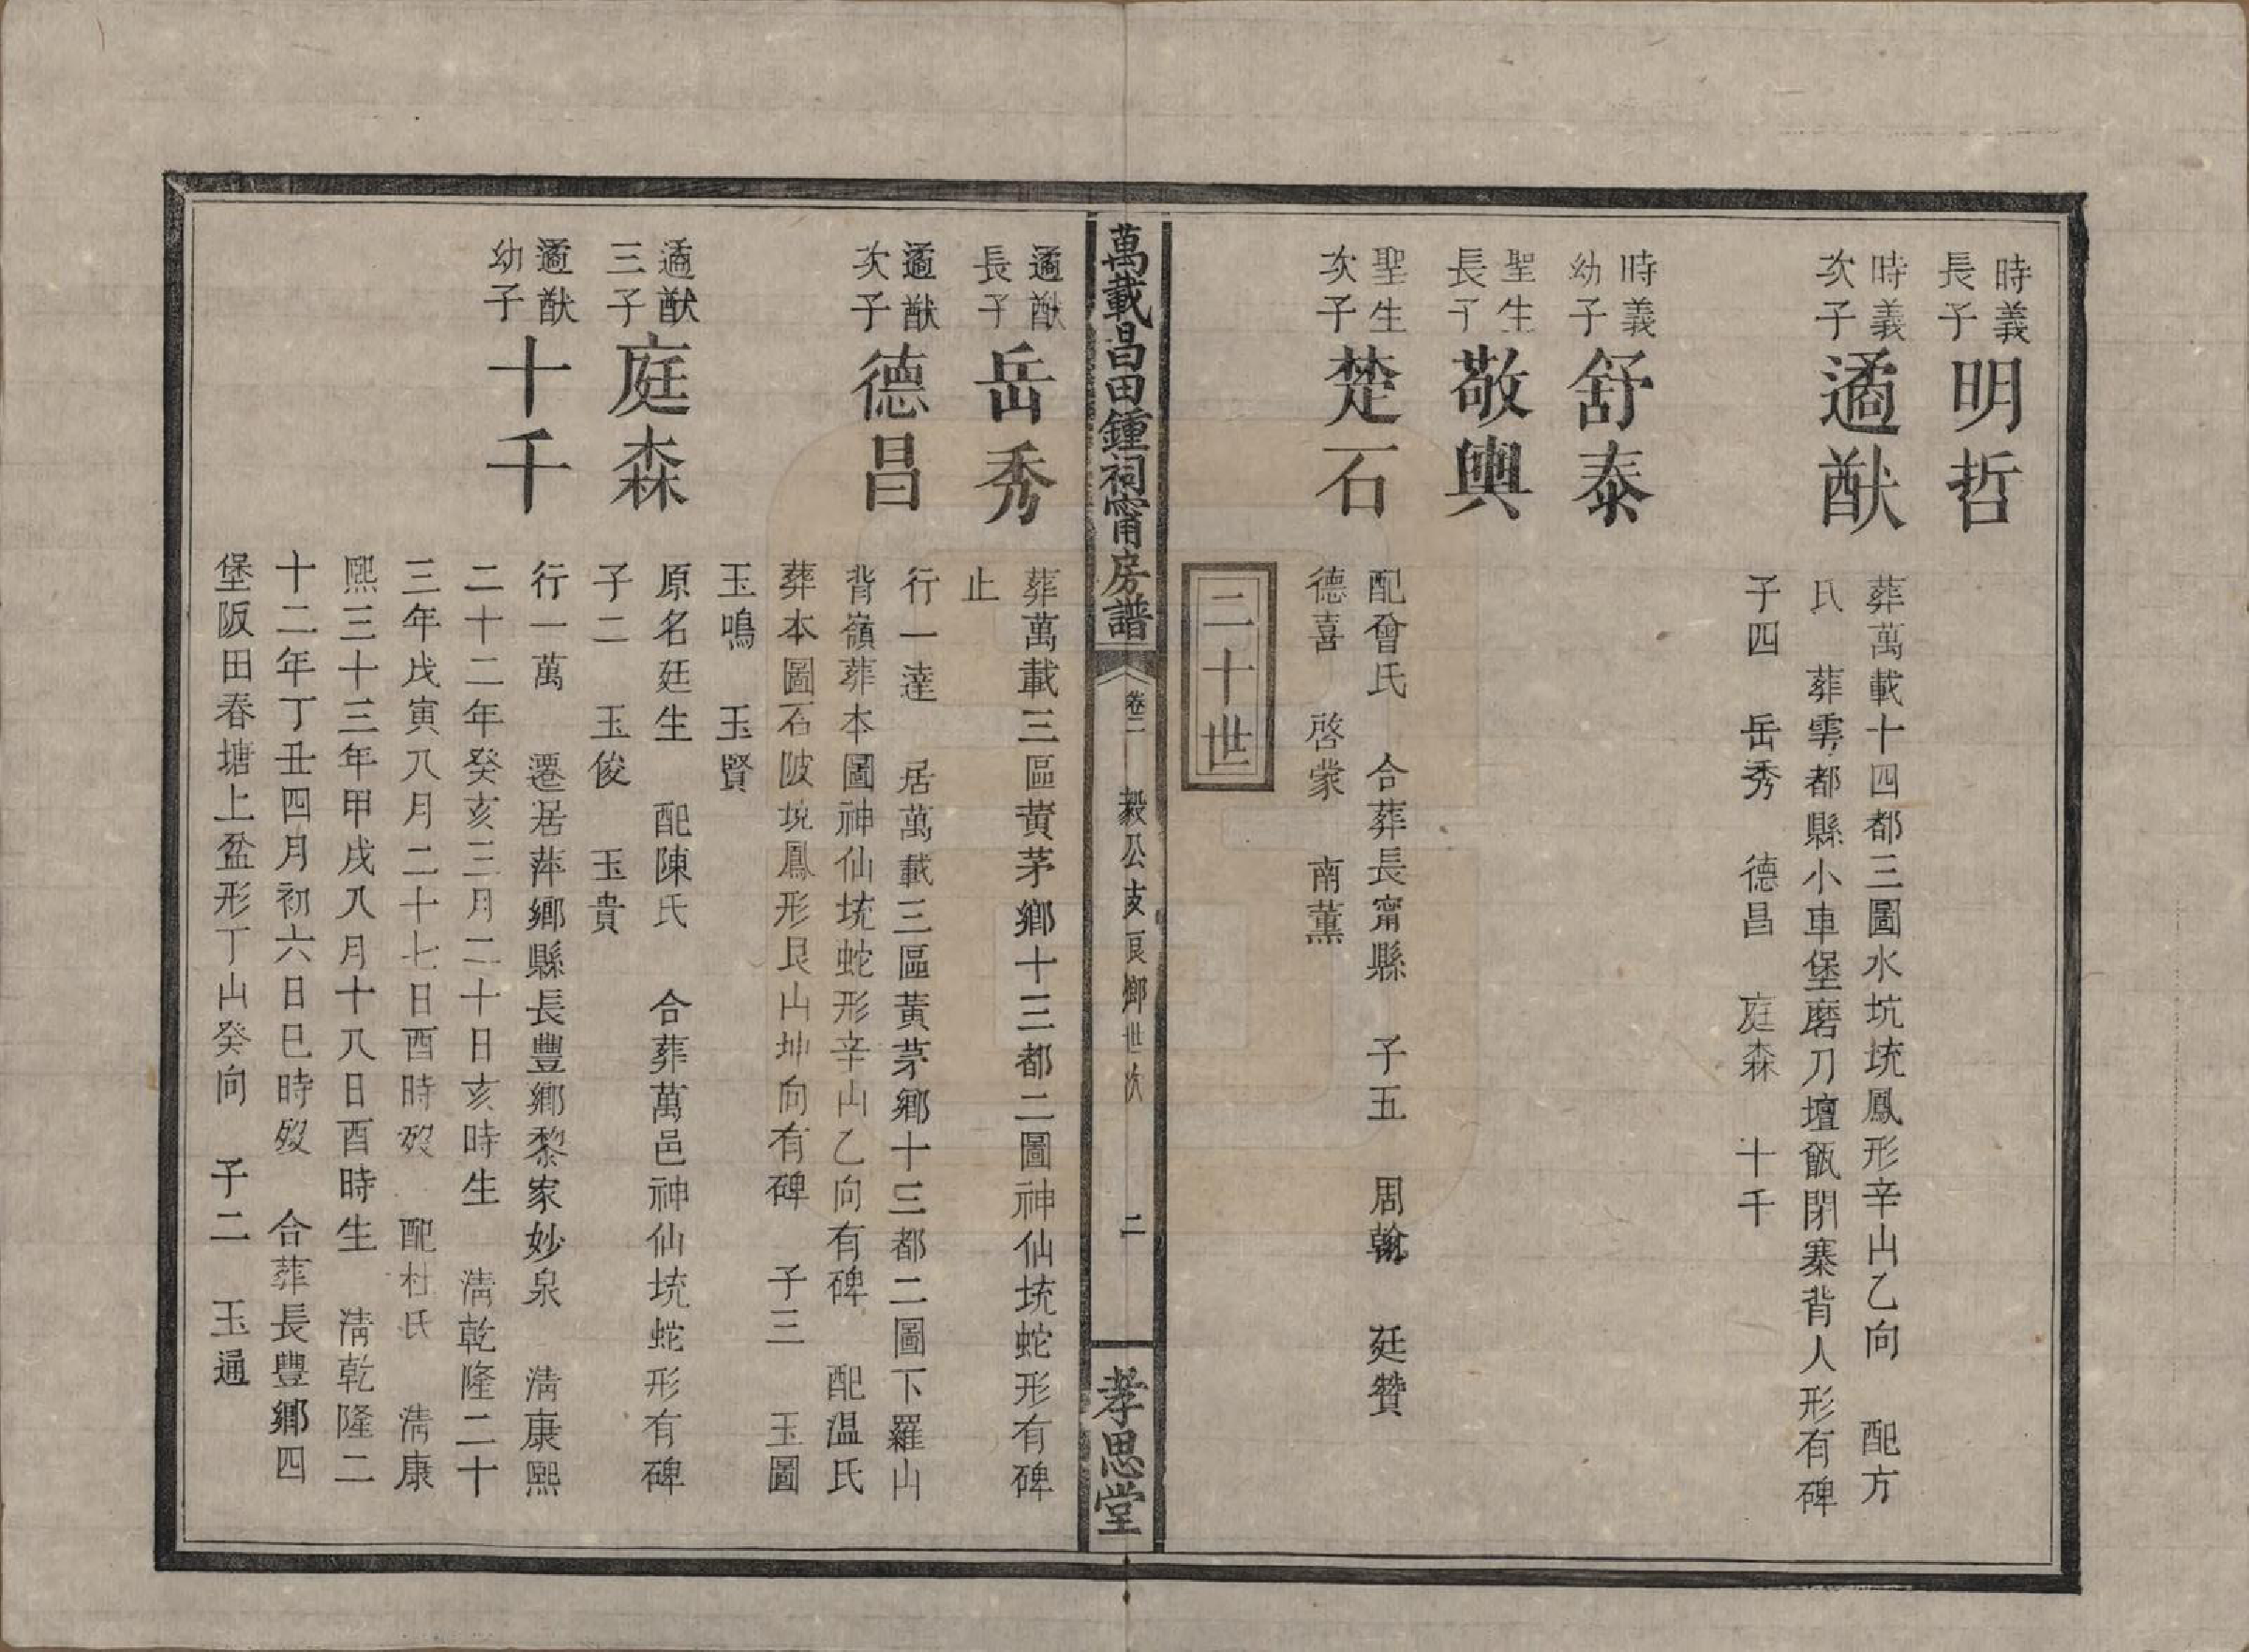 時義
長子
明哲
時義
次子
遹猷
葬萬載十四都三圖水坑㘬鳳形辛山乙向　配方
氏　葬雩都縣小車堡磨刀壇甑閉寨背人形有碑
子四　岳秀　德昌　庭森　十千
時義
幼子
舒泰
聖生
長子
敬輿
聖生
次子
楚石
配曾氏　合葬長甯縣　子五　周翰　廷贊
德喜　啓蒙　南薰
二十世
萬載昌田鍾祠甯房譜
卷二
毅公支良鄉世次
二
孝思堂
遹猷
長子
岳秀
葬萬載三區黄茅鄉十三都二圖神仙㘬蛇形有碑
止
遹猷
次子
德昌
行一達　居萬載三區黃茅鄉十三都二圖下羅山
背嶺葬本圖神仙㘬蛇形辛山乙向有碑　配温氏
葬本圖石陂境鳳形艮山坤向有碑　子三　玉圖
玉鳴　玉賢
遹猷
三子
庭森
原名廷生　配陳氏　合葬萬邑神仙㘬蛇形有碑
子二　玉俊　玉貴
遹猷
幼子
十千
行一萬　遷居萍鄉縣長豐鄉黎家妙泉　清康熙
二十二年癸亥三月二十日亥時生　清乾隆二十
三年戊寅八月二十七日酉時歿　配杜氏　清康
熙三十三年甲戌八月十八日酉時生　清乾隆二
十二年丁丑四月初六日巳時歿　合葬長豐鄉四
堡阪田春塘上盆形丁山癸向　子二　玉通